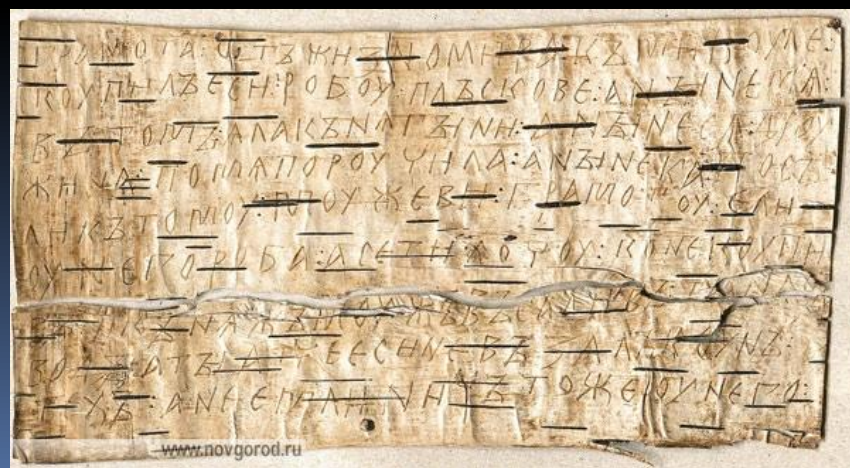 грамота : ѡтъ жизномира : къ микоуле :
коупилъ еси : робоу : плъскове : а нꙑне мѧ :
въ томъ : ѧла кънѧгꙑни : а нꙑне сѧ дроу
жина : по мѧ пороучила : а нꙑне ка : посъ
ли къ томоу : моужеви : грамотоу : е ли
оу него роба : а се ти хочоу : коне коупи
въ : и кънѧжъ моужъ въсадивъ : та на съ
водꙑ : а тꙑ атче еси не възалъ коунъ :
техъ : а не емли : ничъто же оу него :
www.novgorod.ru